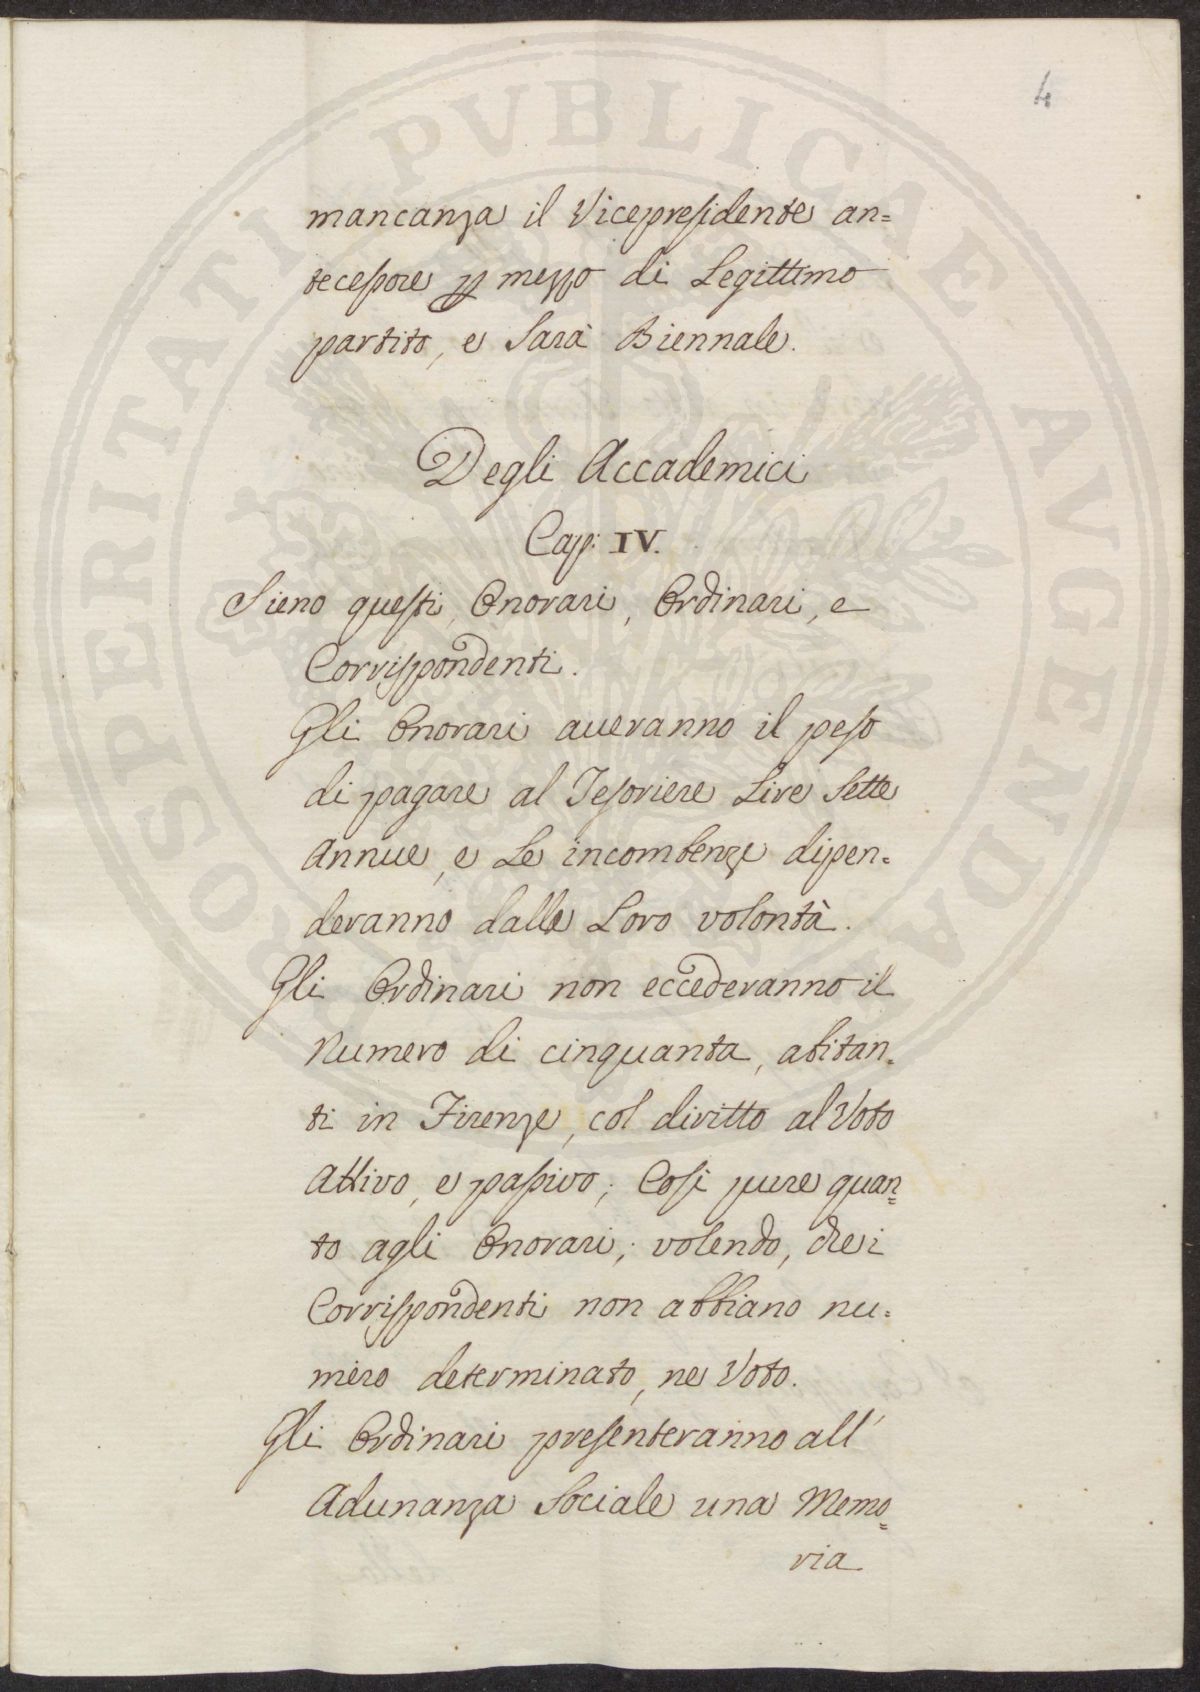 4
PROSPERITATI PVBLICAE AVGENDAE
mancanza il Vicepresidente an=
tecessore p mezzo di Legittimo
partito, e Sarà Biennale.
Degli Accademici
Cap: IV.
Sieno questi, Onorari, Ordinari, e
Corrispondenti.
Gli Onorari averanno il peso
di pagare al Tesoriere Lire Sette
Annue, e Le incombenze dipen=
deranno dalla Loro volontà.
Gli Ordinari non eccederanno il
Numero di cinquanta, abitan=
ti in Firenze, col diritto al Voto
Attivo, e passivo; Così pure quan=
to agli Onorari; volendo, che i
Corrispondenti non abbiano nu=
mero determinato, ne Voto.
Gli Ordinari presenteranno all'
Adunanza Sociale una Memo=
ria